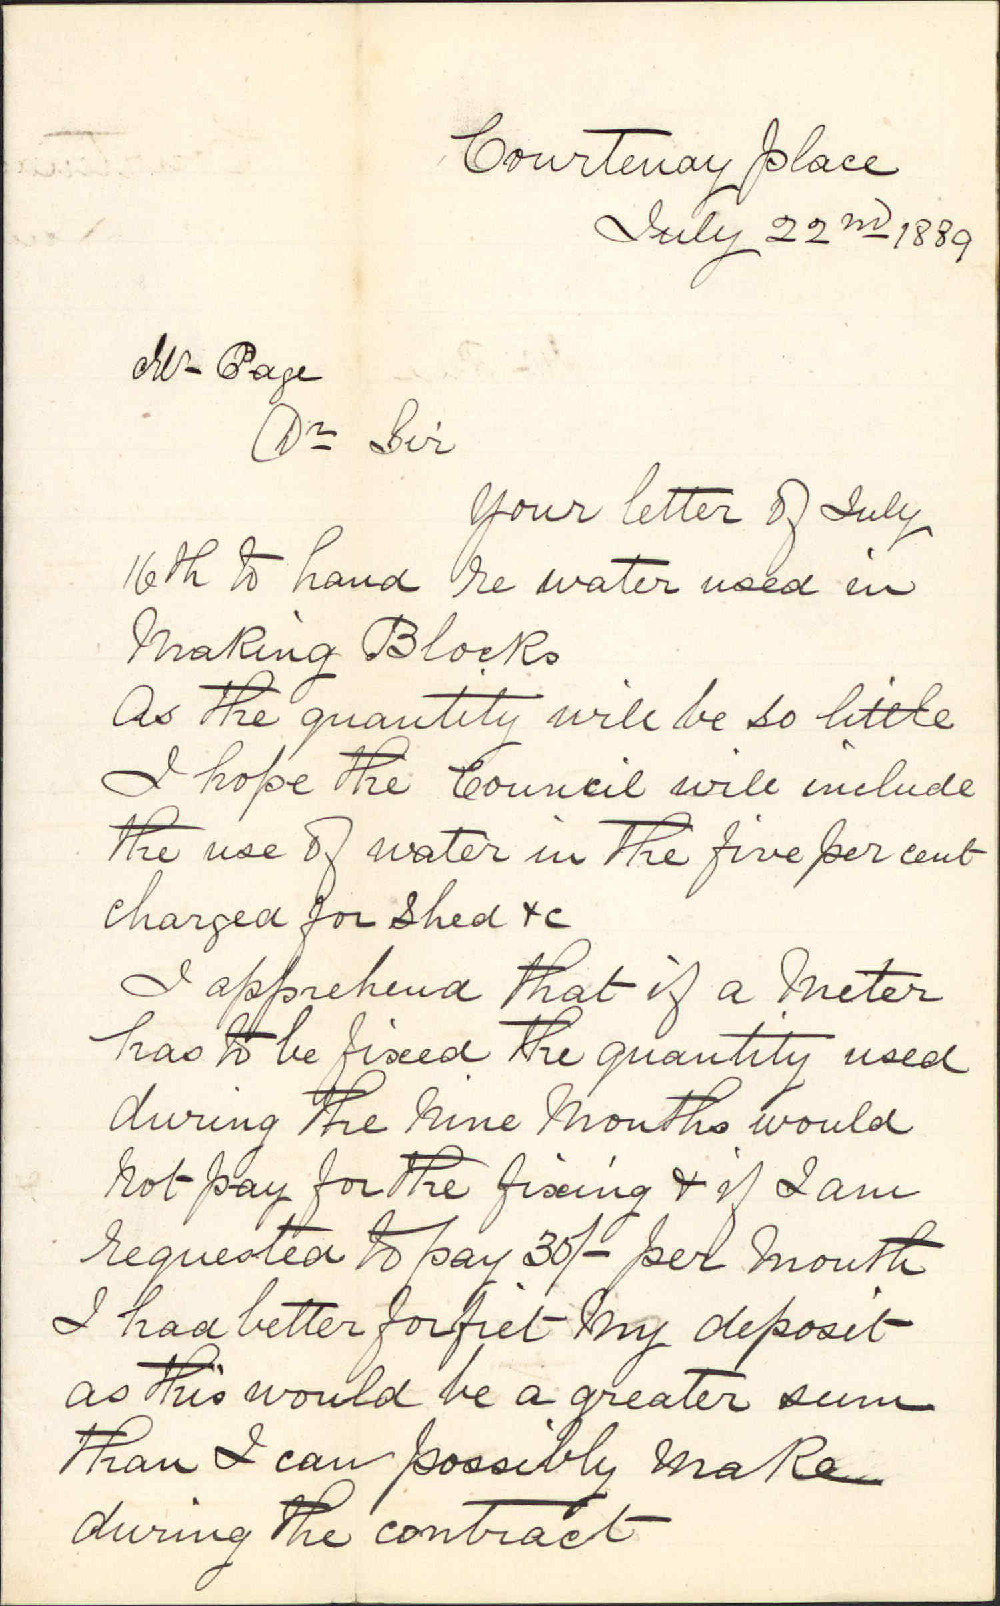 Courtenay Place
July 22nd 1889
Mr Page
Dr Sir
Your letter of July
16th to hand re water used in
Making Blocks
As the quantity will be so little
I hope the Council will include
the use of water in the five per cent
charged for Shed &c
I apprehend that if a Meter
has to be fixed the quantity used
during the Nine Months would
Not pay for the fixing & if I am
requested to pay 30/- per Month
I had better forfiet My deposit
as this would be a greater sum
than I can possibly Make
during the contract